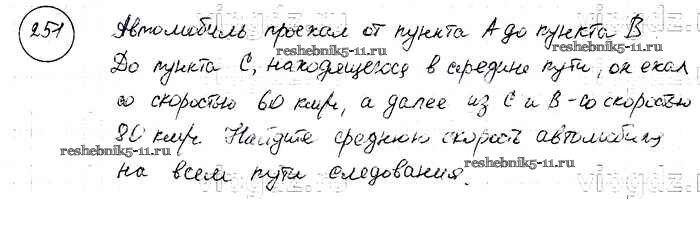 251 Автомобиль проехал от пункта А до пункта В
До пункта С, находящегося в середине пути, он ехал
со скоростью 60 км/ч, а далее из С и В - со скоростью
80 км/ч. Найдите среднюю скорость автомобиля
на всем пути следования.
reshebnik5-11.ru
reshebnik5-11.ru
reshebnik5-11.ru
reshebnik5-11.ru